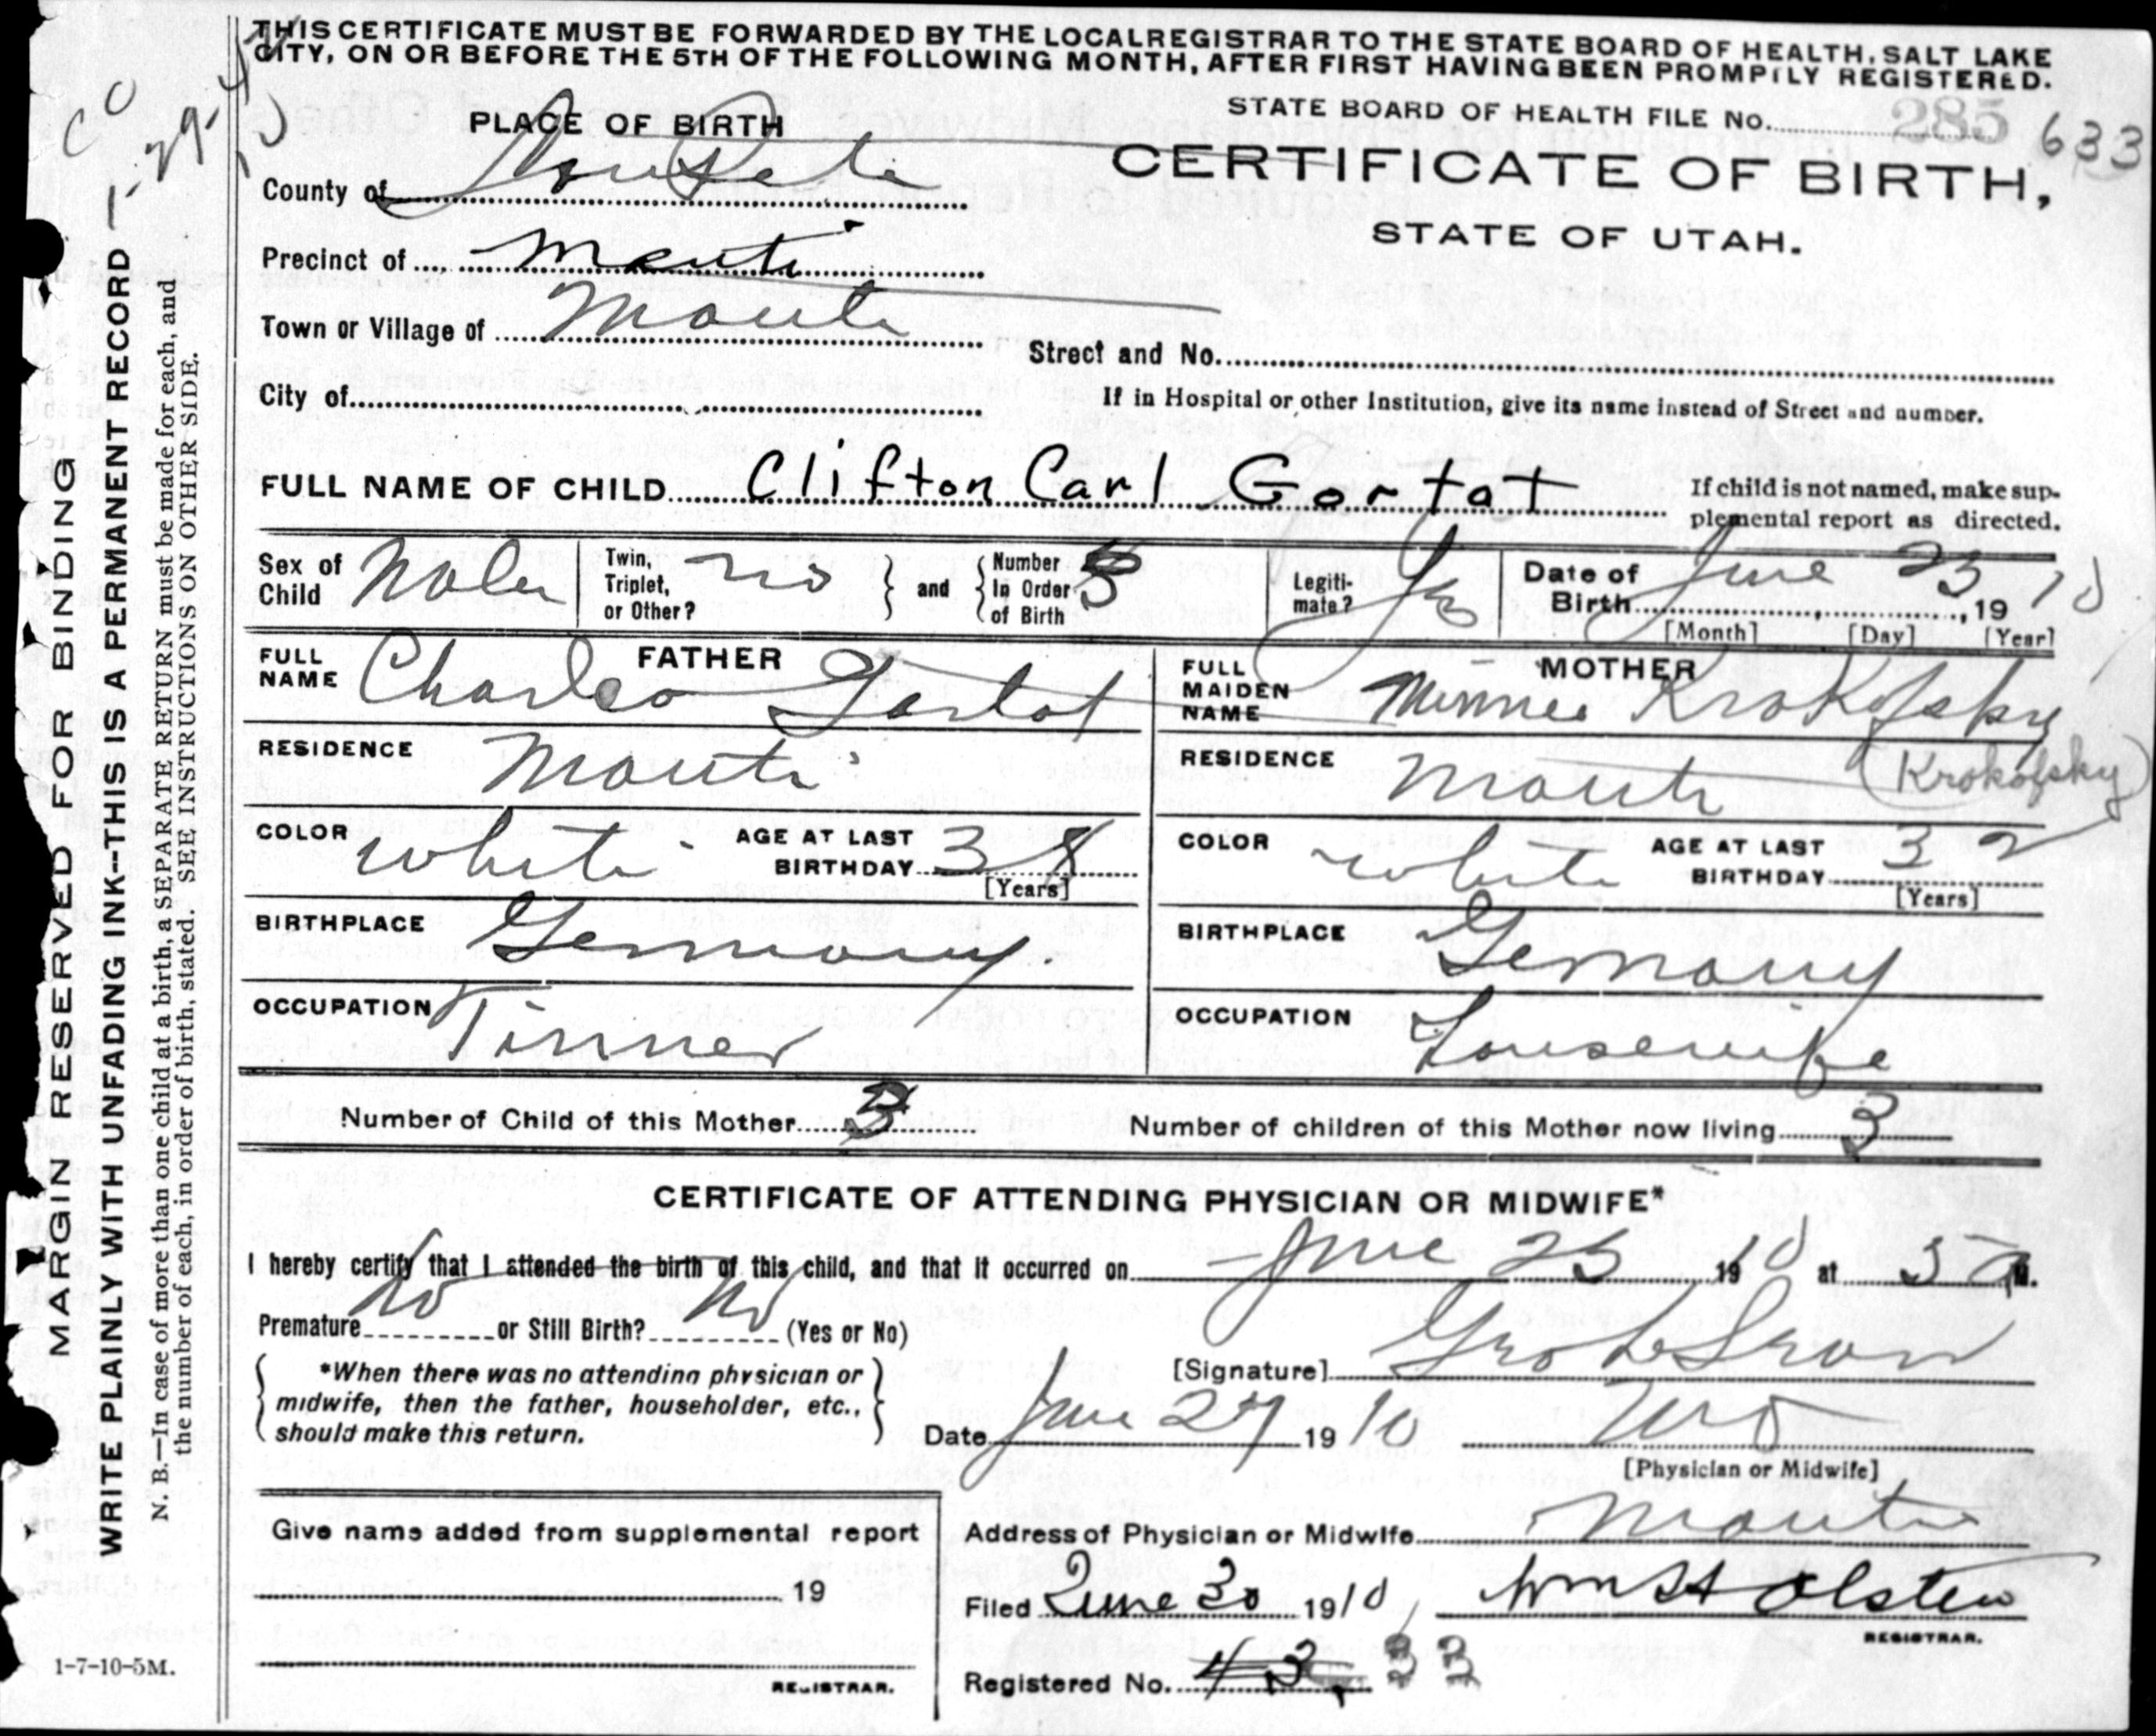 THIS CERTIFICATE MUST BE FORWARDED BY THE LOCALREGISTRAR TO THE STATE BOARD OF HEALTH, SALT LAKE
CITY, ON OR BEFORE THE 5TH OF THE FOLLOWING MONTH, AFTER FIRST HAVING BEEN PROMPTLY REGISTERED.
STATE BOARD OF HEALTH FILE No. 285 633
PLACE OF BIRTH
CERTIFICATE OF BIRTH,
STATE OF UTAH.
County of SanPete
Precinct of Manti
Town or Village of Manti
Street and No.
City of
If in Hospital or other Institution, give its name instead of Street and number.
FULL NAME OF CHILD Clifton Carl Gortat
If child is not named, make sup-
plemental report as directed.
Sex of Child Male
Twin, Triplet, or Other? no
and
Number In Order of Birth
Legiti-mate? Yes
Date of Birth June 23, 1910
[Month] [Day] [Year]
FATHER
FULL NAME Charles Gortat
RESIDENCE Manti
COLOR white
AGE AT LAST BIRTHDAY 38
[Years]
BIRTHPLACE Germany.
OCCUPATION Tinner
MOTHER
FULL MAIDEN NAME Minnie Krokofsky
(Krokofsky)
RESIDENCE Manti
COLOR white
AGE AT LAST BIRTHDAY 32
[Years]
BIRTHPLACE Germany
OCCUPATION Housewife
Number of Child of this Mother 3
Number of children of this Mother now living 3
CERTIFICATE OF ATTENDING PHYSICIAN OR MIDWIFE*
I hereby certify that I attended the birth of this child, and that it occurred on June 23, 1910 at 5 A M.
Premature No or Still Birth? No (Yes or No)
*When there was no attending physician or
midwife, then the father, householder, etc.,
should make this return.
[Signature]
Date June 27 1910 MD
[Physician or Midwife]
Give name added from supplemental report
19
REGISTRAR.
Address of Physician or Midwife Manti
Filed June 30 1910, Wm H Olsten
REGISTRAR.
Registered No. 43 33
MARGIN RESERVED FOR BINDING
WRITE PLAINLY WITH UNFADING INK--THIS IS A PERMANENT RECORD
N. B.—In case of more than one child at a birth, a SEPARATE RETURN must be made for each, and
the number of each, in order of birth, stated. SEE INSTRUCTIONS ON OTHER SIDE.
1-7-10-5M.